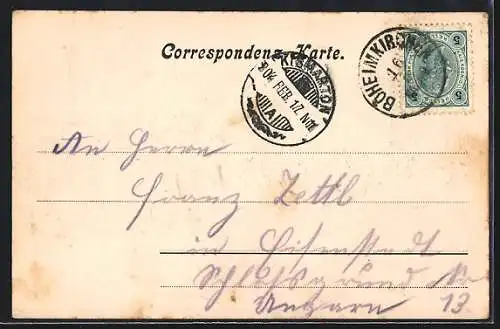 Correspondenz-Karte.
KISMARTON
904 FEB. 17 N
A
BÖHEIMKIRCHEN
5 5
An Herrn
Franz Zettl
in Eisenstadt
Schloßgrund No
Ungarn 13.